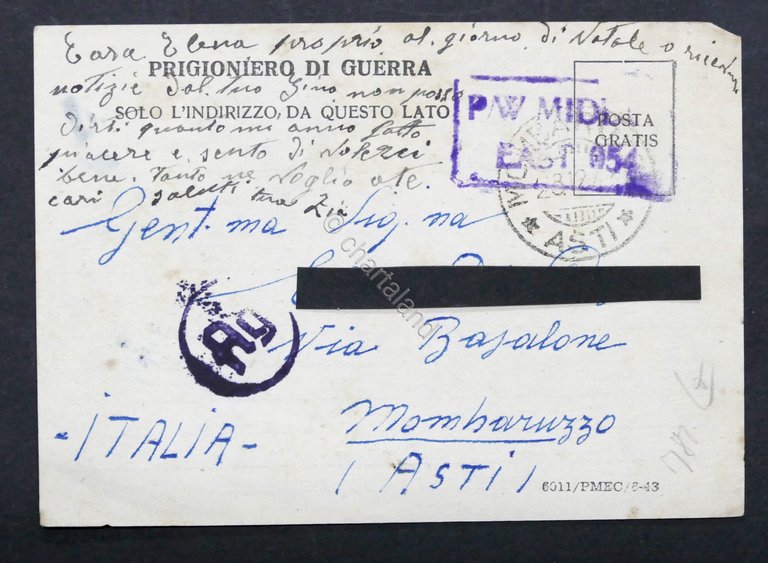 Cara Elena proprio al giorno di Natale o ricevuto
PRIGIONIERO DI GUERRA
notizie dal tuo Gino non posso
SOLO L'INDIRIZZO, DA QUESTO LATO
dirti quanto mi anno fatto
piacere e sento di
bene. Tanto ne voglio a te
cari saluti tua Zia
P/W MIDDLE
EAST 954
POSTA
GRATIS
ASTI
Gent.ma Sig.na
Via Basalone
Mombaruzzo
(ASTI)
-ITALIA-
Ag
6011/PMEC/6-43
© chartaland